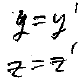 y = y'
z = z'